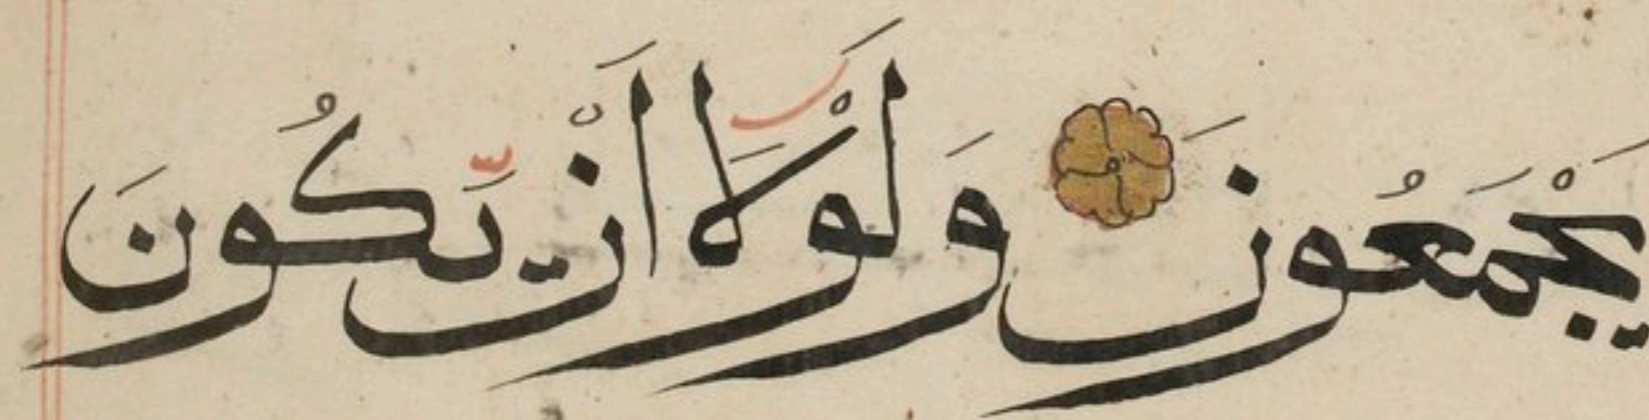 يَجْمَعُونَ وَلَوْلَا أَنْ يَكُونَ